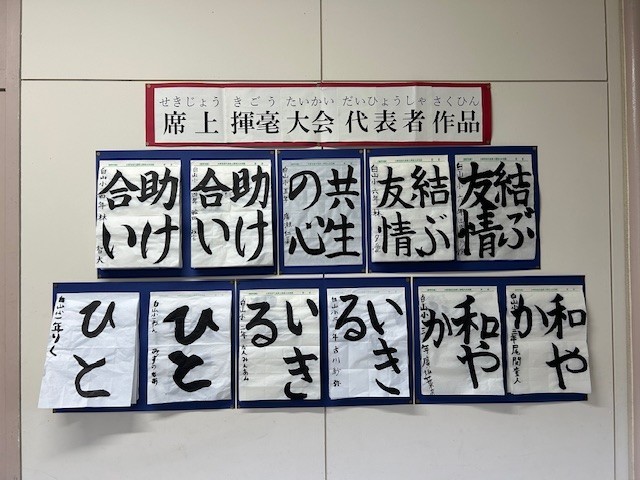 せきじょう きごう たいかい だいひょうしゃ さくひん
席上揮毫大会代表者作品
結ぶ
友情
結ぶ
友情
白山小六年
共生
の心
助け
合い
助け
合い
白山小四年
和や
か
白山小三年
和や
か
白山小
いき
る
白山小
いき
る
白山小
ひと
白山小
ひと
白山小一年りく